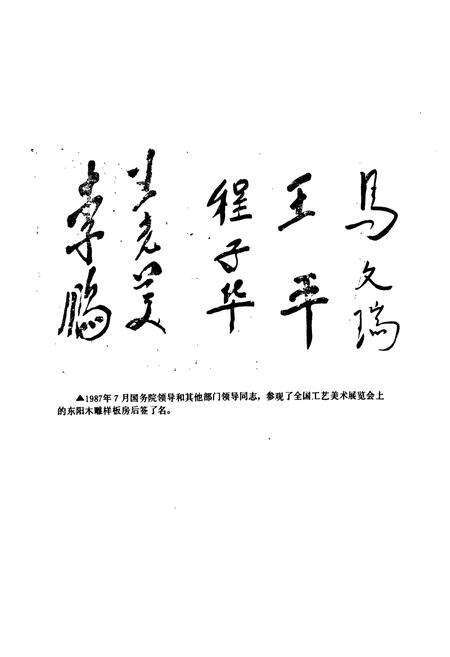 李鹏
王光英
程子华
王平
马文瑞
▲1987年7月国务院领导和其他部门领导同志，参观了全国工艺美术展览会上
的东阳木雕样板房后签了名。